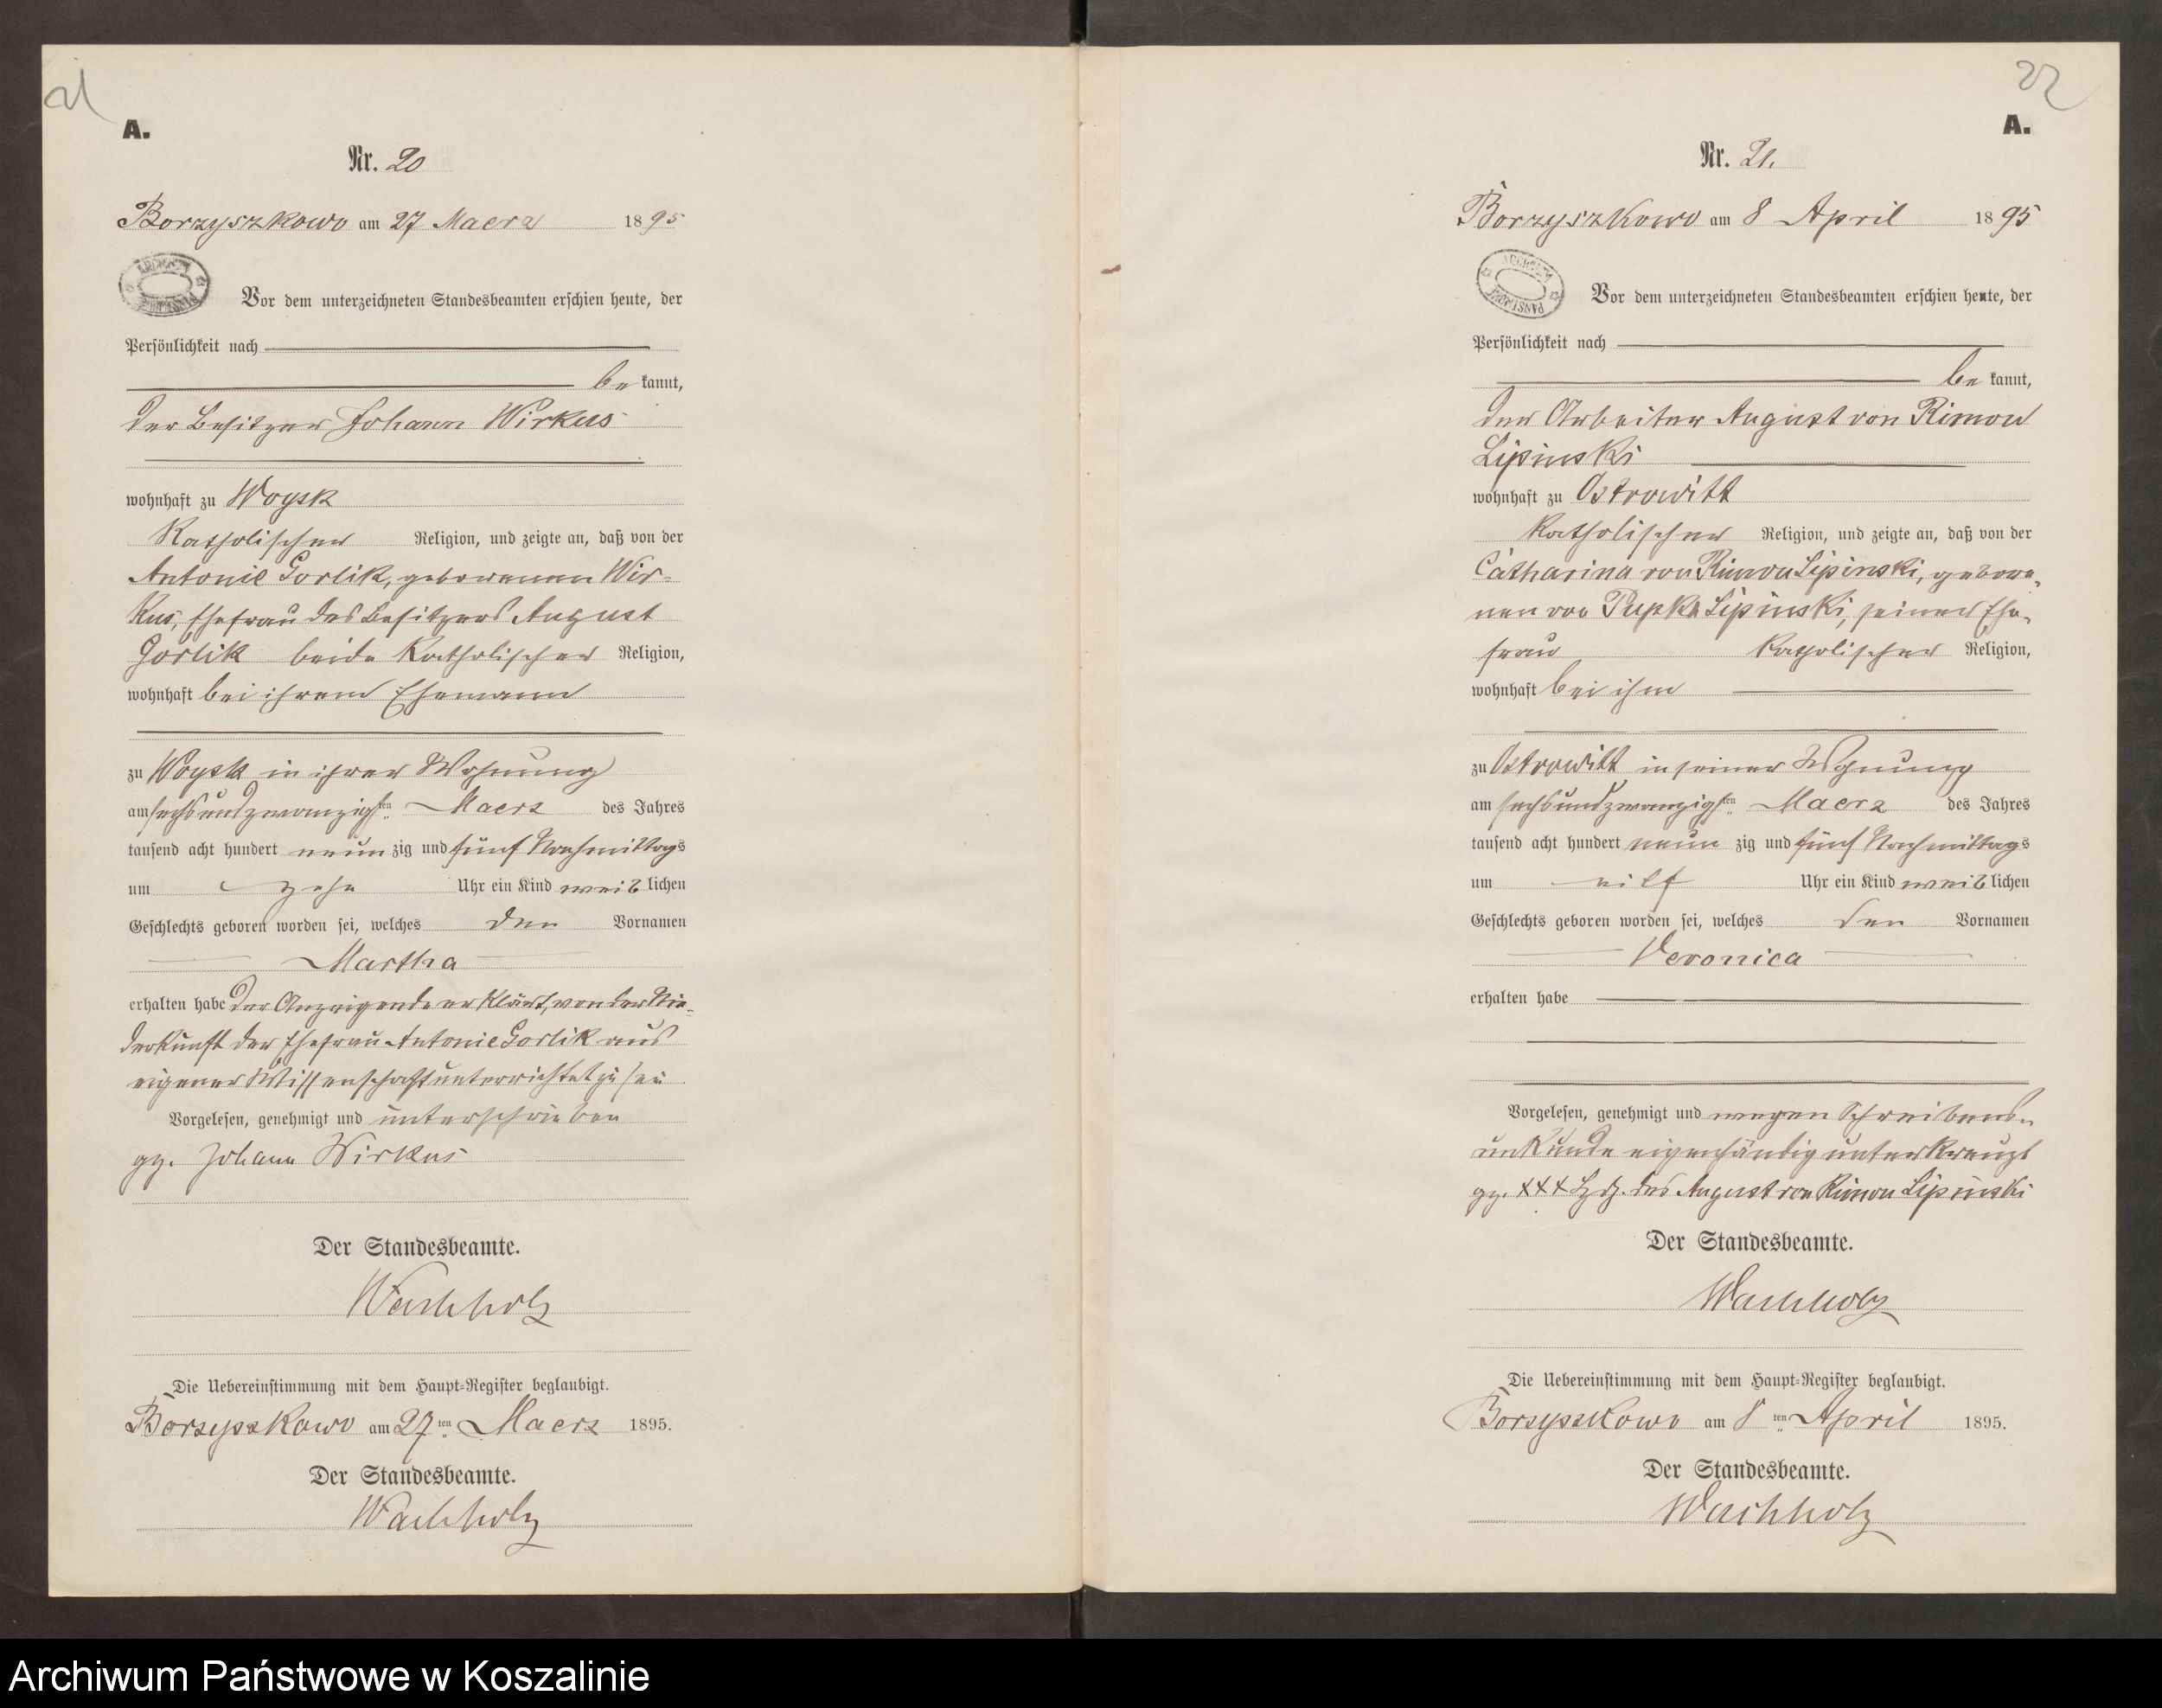 21
A.
Nr. 20
Borzyszkowo am 27 Maerz 1895
Vor dem unterzeichneten Standesbeamten erschien heute, der
Persönlichkeit nach
be kannt,
der Besitzer Johann Wirkus
wohnhaft zu Woysk
Katholischer Religion, und zeigte an, daß von der
Antonie Gorlik, geborenen Wir-
kus, Ehefrau des Besitzers August
Gorlik beide Katholischer Religion,
wohnhaft bei ihrem Ehemann
zu Woysk in ihrer Wohnung
am sechsundzwanzigsten Maerz des Jahres
tausend acht hundert neunzig und fünf Nachmittags
um zehn Uhr ein Kind weiblichen
Geschlechts geboren worden sei, welches den Vornamen
Martha
erhalten habe Der Anzeigende erklärt, von der Nie-
derkunft der Ehefrau Antonie Gorlik aus
eigener Wissenschaft unterrichtet zu sein
Vorgelesen, genehmigt und unterschrieben
gz. Johann Wirkus
Der Standesbeamte.
Wachholz
Die Uebereinstimmung mit dem Haupt-Register beglaubigt.
Borzyszkowo am 27ten Maerz 1895.
Der Standesbeamte.
Wachholz
22
A.
Nr. 21.
Borzyszkowo am 8 April 1895
ARCHIWUM PAŃSTWOWE
Vor dem unterzeichneten Standesbeamten erschien heute, der
Persönlichkeit nach
be kannt,
der Arbeiter August von Rimon
Lipinski
wohnhaft zu Ostrowitt
Katholischer Religion, und zeigte an, daß von der
Catharina von Rimon Lipinski, gebore-
nen von Pupka Lipinski, seiner Ehe-
frau Katholischer Religion,
wohnhaft bei ihm
zu Ostrowitt in seiner Wohnung
am sechsundzwanzigsten Maerz des Jahres
tausend acht hundert neun zig und fünf Nachmittags
um eilf Uhr ein Kind weiblichen
Geschlechts geboren worden sei, welches den Vornamen
Veronica
erhalten habe
Vorgelesen, genehmigt und wegen Schreibens-
unkunde eigenhändig unterkreuzt
gz. XXX Hdz. des August von Rimon Lipinski
Der Standesbeamte.
Wachholz
Die Uebereinstimmung mit dem Haupt-Register beglaubigt.
Borzyszkowo am 8ten April 1895.
Der Standesbeamte.
Wachholz
Archiwum Państwowe w Koszalinie